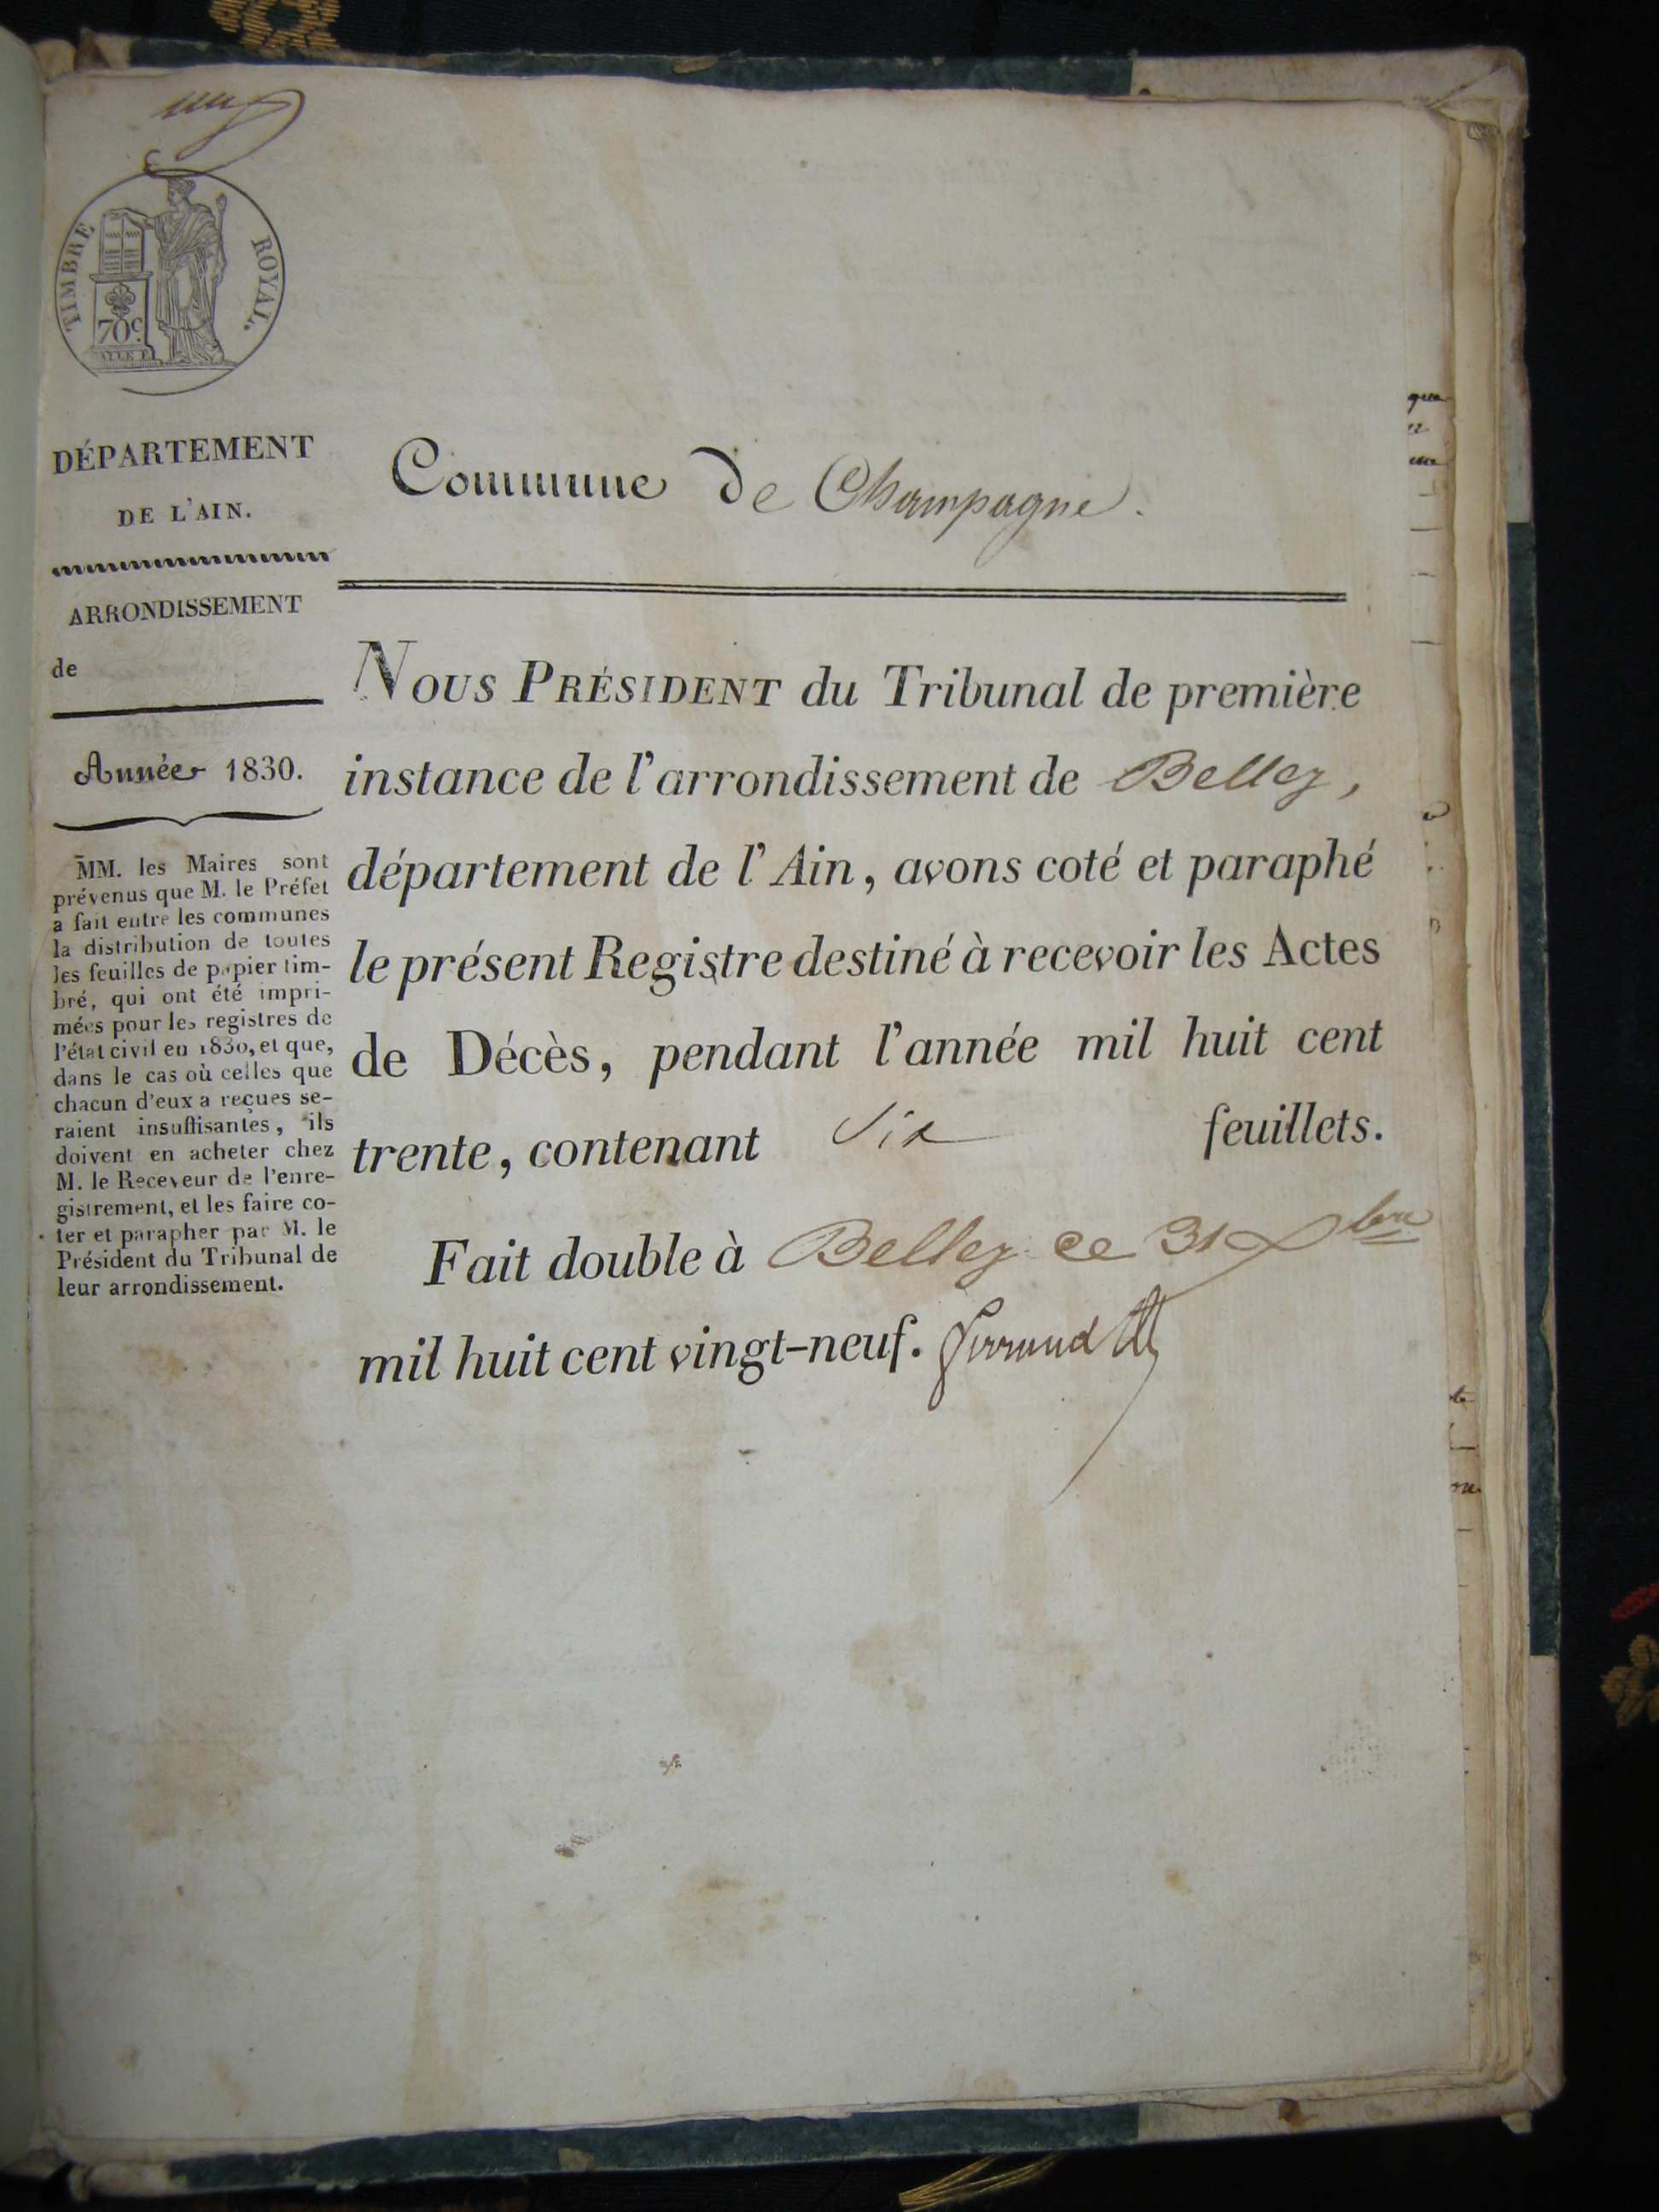 un
TIMBRE ROYAL.
70c.
DÉPARTEMENT
DE L'AIN.
ARRONDISSEMENT
de
Année 1830.
MM. les Maires sont
prévenus que M. le Préfet
a fait entre les communes
la distribution de toutes
les feuilles de papier tim-
bré, qui ont été impri-
mées pour les registres de
l'état civil en 1830, et que,
dans le cas où celles que
chacun d'eux a reçues se-
raient insuffisantes, ils
doivent en acheter chez
M. le Receveur de l'enre-
gistrement, et les faire co-
ter et parapher par M. le
Président du Tribunal de
leur arrondissement.
Commune de Champagne.
NOUS PRÉSIDENT du Tribunal de première
instance de l'arrondissement de Belley,
département de l'Ain, avons coté et paraphé
le présent Registre destiné à recevoir les Actes
de Décès, pendant l'année mil huit cent
trente, contenant Six feuillets.
Fait double à Belley ce 31 Xbre
mil huit cent vingt-neuf.